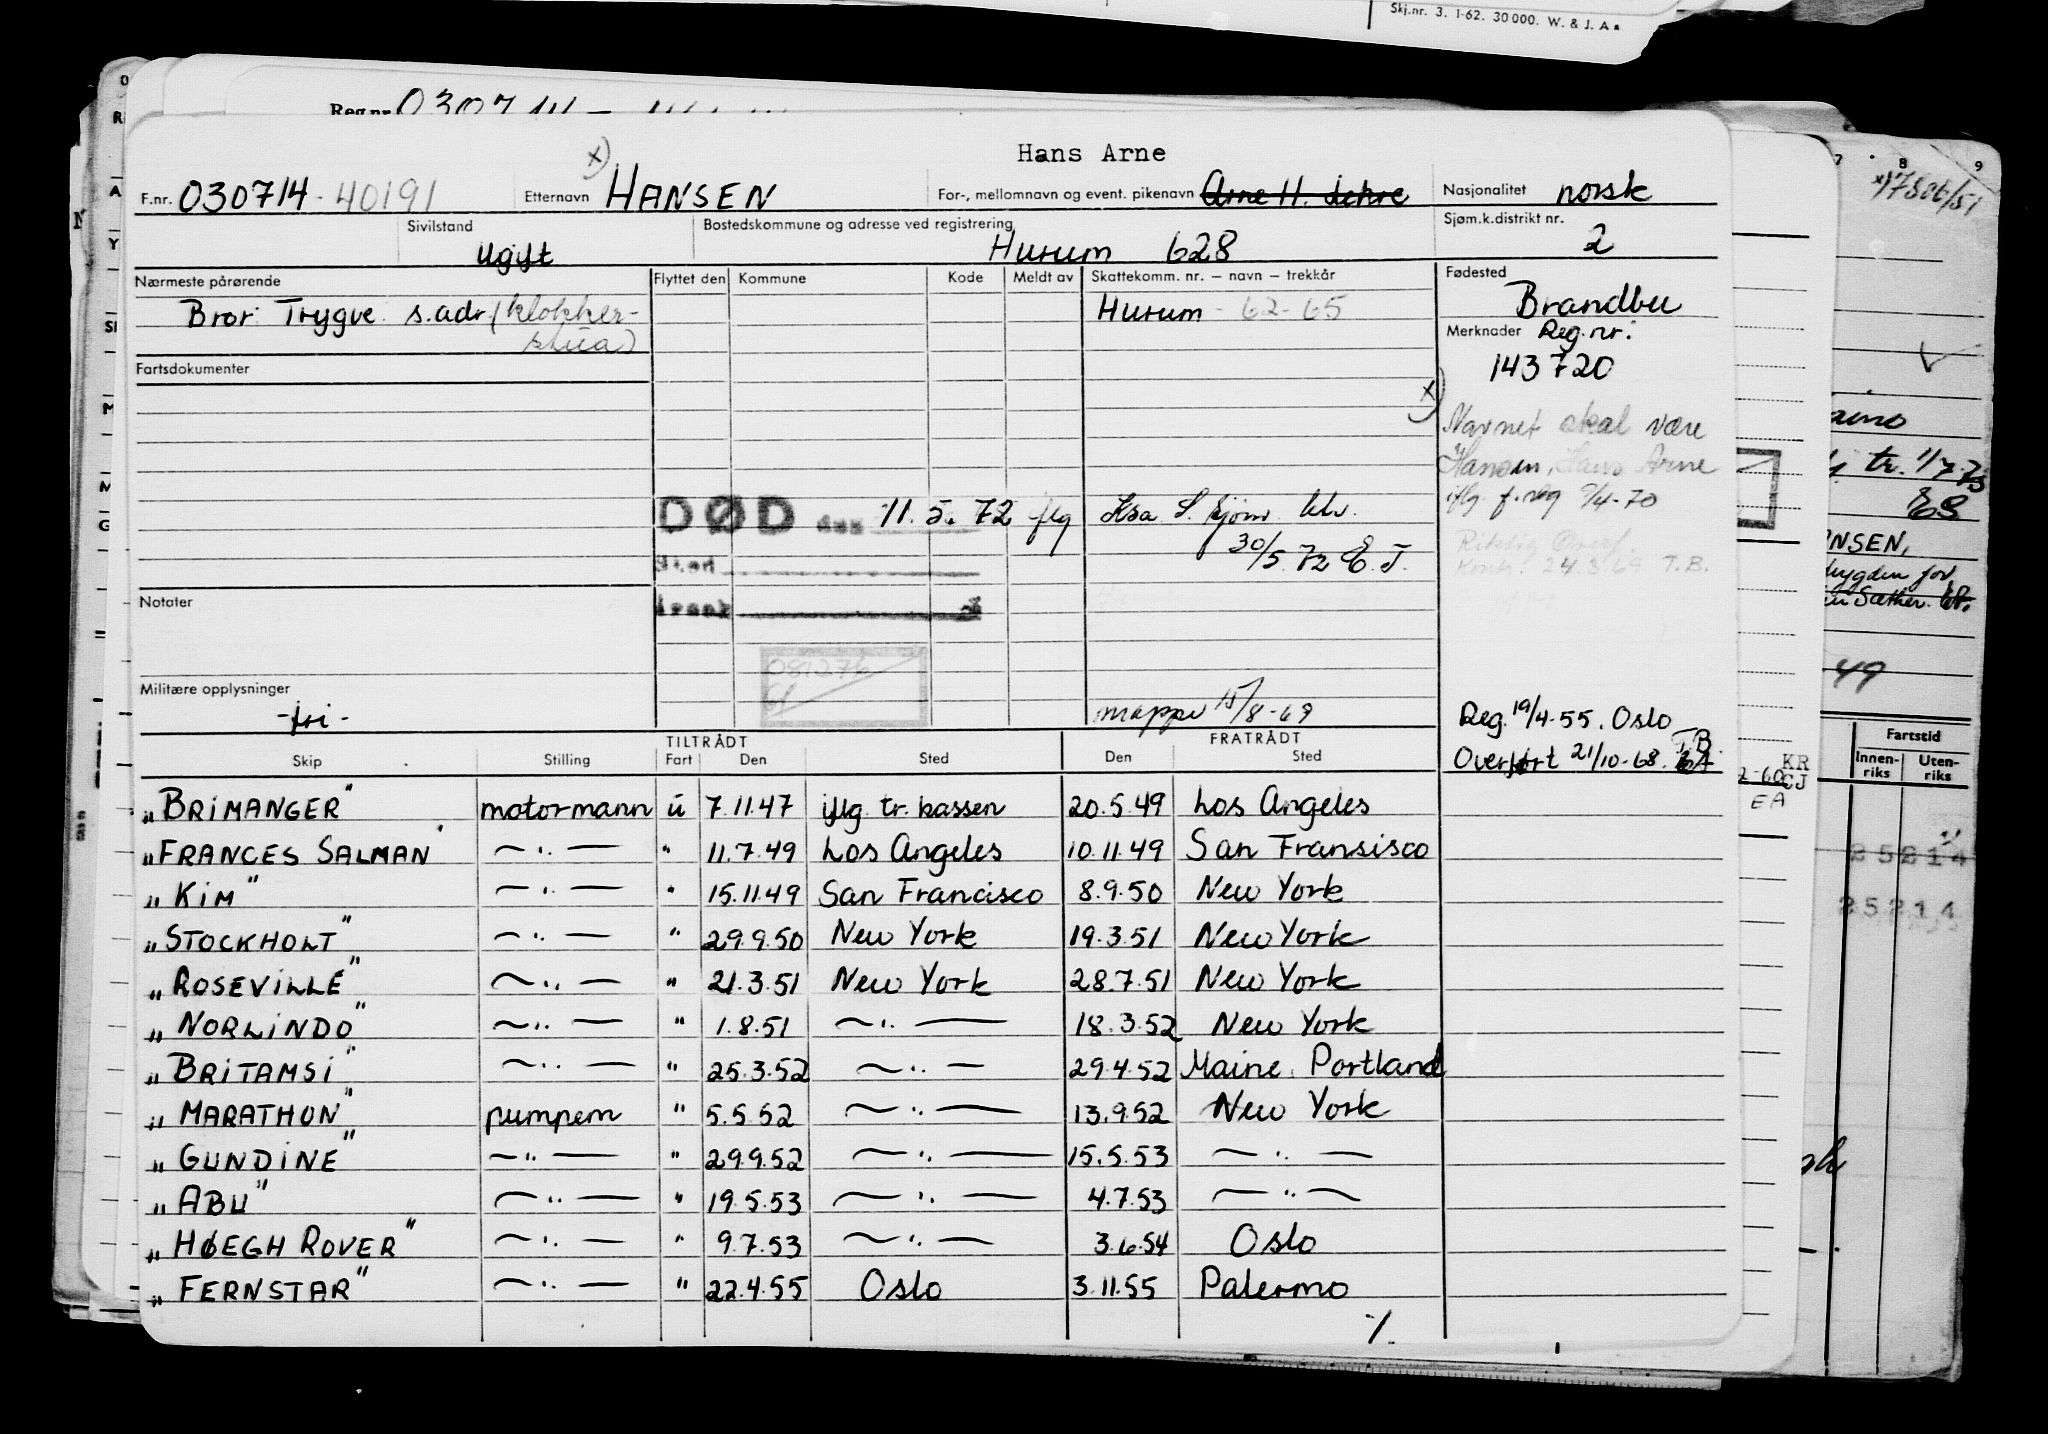 Skj.nr. 3. 1-62. 30 000. W. & J. A s
Reg.nr.
Hans Arne
x)
F.nr. 030714-40191 Etternavn HANSEN For-, mellomnavn og event. pikenavn Arne H. Nasjonalitet norsk
Sivilstand ugift Bostedskommune og adresse ved registrering Hurum 628 Sjøm.k.distrikt nr. 2
Nærmeste pårørende Flyttet den Kommune Kode Meldt av Skattekomm. nr. – navn – trekkår Fødested
Bror Trygve s.adr (klokker-
stua)
Hurum - 62-65
Brandbu
Merknader Reg.nr:
143720
Fartsdokumenter
x)
Navnet skal være
Hansen, Hans Arne
iflg. f.reg 9/4-70
DØD den 11.5.72 iflg
30/5.72 E.T.
Sted
Årsak
24.3.69 T.B.
Notater
081276
61
Militære opplysninger
-fri-
mappe 15/8-69
Reg. 19/4-55. Oslo
Overført 21/10-68. T.B.
TILTRÅDT FRATRÅDT
Skip Stilling Fart Den Sted Den Sted
"BRIMANGER" motormann u 7.11.47 iflg. tr. kassen 20.5.49 Los Angeles
"FRANCES SALMAN" — " — " 11.7.49 Los Angeles 10.11.49 San Fransisco
"KIM" — " — " 15.11.49 San Francisco 8.9.50 New York
"STOCKHOLT" — " — " 29.9.50 New York 19.3.51 New York
"ROSEVILLE" — " — " 21.3.51 New York 28.7.51 New York
"NORLINDO" — " — " 1.8.51 — " — 18.3.52 New York
"BRITAMSI" — " — " 25.3.52 — " — 29.4.52 Maine Portland
"MARATHON" pumpem " 5.5.52 — " — 13.9.52 New York
"GUNDINE" — " — " 29.9.52 — " — 15.5.53 — " —
"ABU" — " — " 19.5.53 — " — 4.7.53 — " —
"HØEGH ROVER" — " — " 9.7.53 — " — 3.6.54 Oslo
"FERNSTAR" — " — " 22.4.55 Oslo 3.11.55 Palermo
./.
7 8 9
tr. 1/7-73
NSEN,
Sæther.
49
Fartstid
Innen-
riks
Uten-
riks
KR
CJ
EA
25214
25214